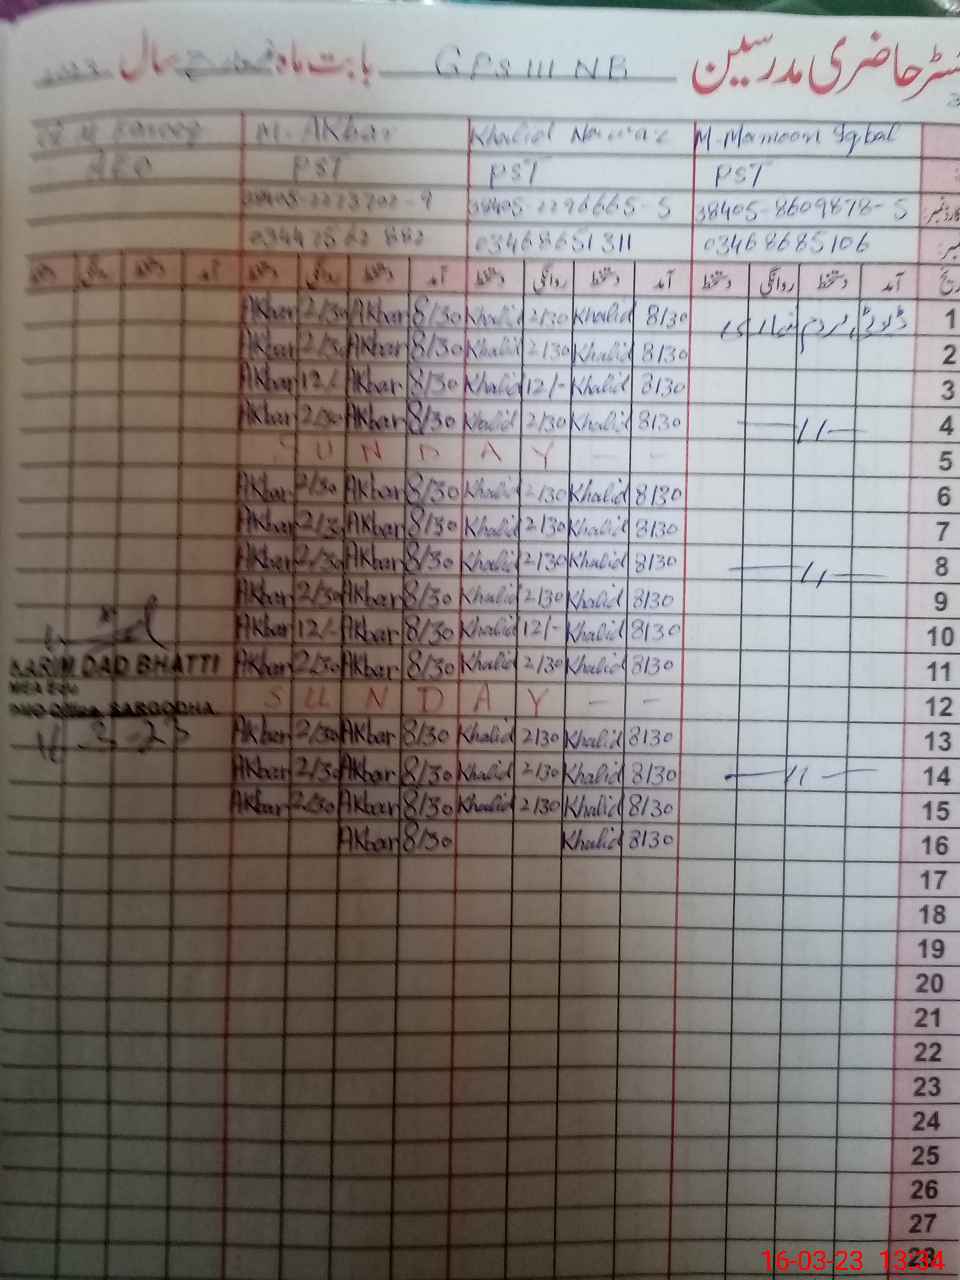 رجسٹر حاضری مدرسین GPS III NB بابت ماہ مارچ سال 2023
M. Mamoon Iqbal Khalid Nawaz M. Akbar
PST PST PST
38405-8609878-5 38405-2296665-5 38405-2273702-9
03468685106 03468651311 03442562882
آمد دستخط روانگی دستخط آمد دستخط روانگی دستخط آمد دستخط روانگی دستخط آمد دستخط روانگی دستخط
1 8/30 Khalid 2/30 Khalid 8/30 Akbar 2/30 Akbar
2 8/30 Khalid 2/30 Khalid 8/30 Akbar 2/30 Akbar
3 8/30 Khalid 12/- Khalid 8/30 Akbar 12/- Akbar
4 —11— 8/30 Khalid 2/30 Khalid 8/30 Akbar 2/30 Akbar
5 SUNDAY - -
6 8/30 Khalid 2/30 Khalid 8/30 Akbar 2/30 Akbar
7 8/30 Khalid 2/30 Khalid 8/30 Akbar 2/30 Akbar
8 —11— 8/30 Khalid 2/30 Khalid 8/30 Akbar 2/30 Akbar
9 8/30 Khalid 2/30 Khalid 8/30 Akbar 2/30 Akbar
10 8/30 Khalid 12/- Khalid 8/30 Akbar 12/- Akbar
11 8/30 Khalid 2/30 Khalid 8/30 Akbar 2/30 Akbar
KARIM DAD BHATTI
12 SUNDAY - -
SARGODHA
13 8/30 Khalid 2/30 Khalid 8/30 Akbar 2/30 Akbar
14 —11— 8/30 Khalid 2/30 Khalid 8/30 Akbar 2/30 Akbar
15 8/30 Khalid 2/30 Khalid 8/30 Akbar 2/30 Akbar
16 8/30 Khalid 8/30 Akbar
17
18
19
20
21
22
23
24
25
26
27
28
16-03-23 13:34